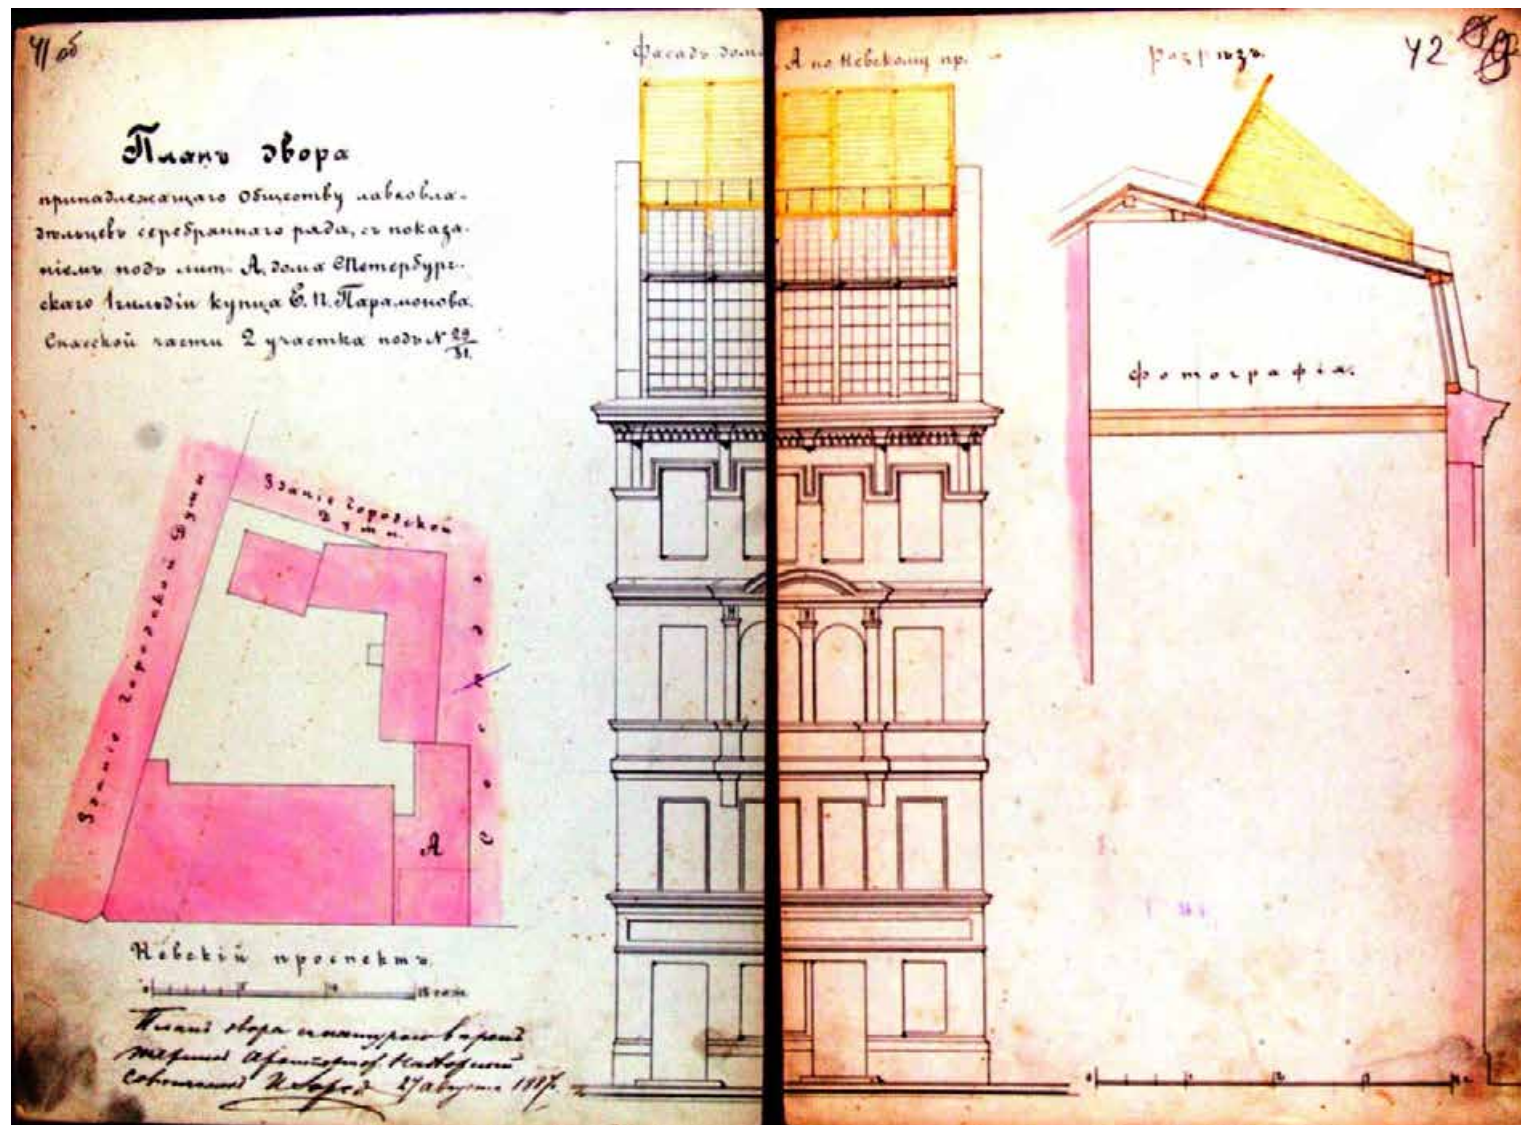 41 об
Планъ двора
принадлежащаго Обществу лавковла-
дѣльцевъ серебряннаго ряда, съ показа-
ніемъ подъ лит. А. дома СПетербург-
скаго 1 гильдіи купца Е. П. Парамонова.
Спасской части 2 участка подъ № 29/31.
Зданіе Городской Думы
Зданіе Городской
Думы.
Сосѣдъ
А
Невскій проспектъ.
Планъ двора съ натурою вѣренъ
Архитекторъ
27 августа 1887
Фасадъ дома А по Невскому пр.
Разрѣзъ.
42
Фотографія.